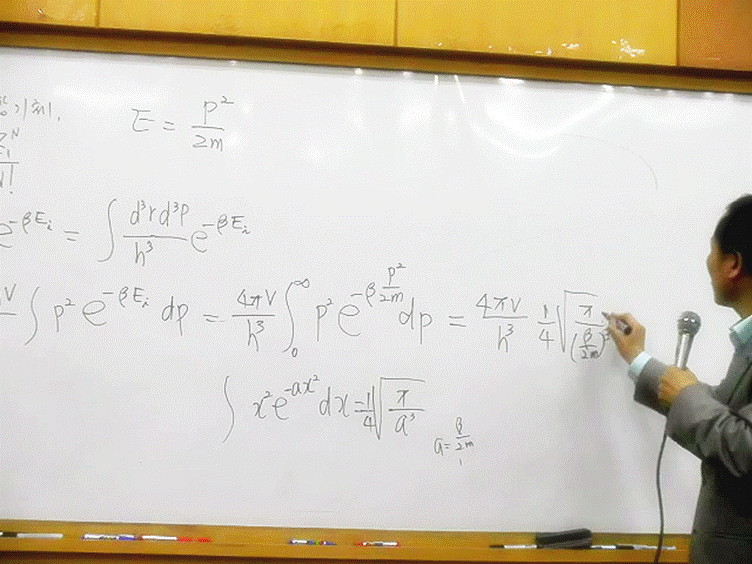 E = p²/2m
e^{-βE_i} = ∫ d³r d³p/h³ e^{-βE_i}
∫ p² e^{-βE_i} dp = 4πV/h³ ∫₀^∞ p² e^{-β p²/2m} dp = 4πV/h³ 1/4 √(π/(β/2m)³)
∫ x² e^{-ax²} dx = 1/4 √(π/a³)
a = β/2m